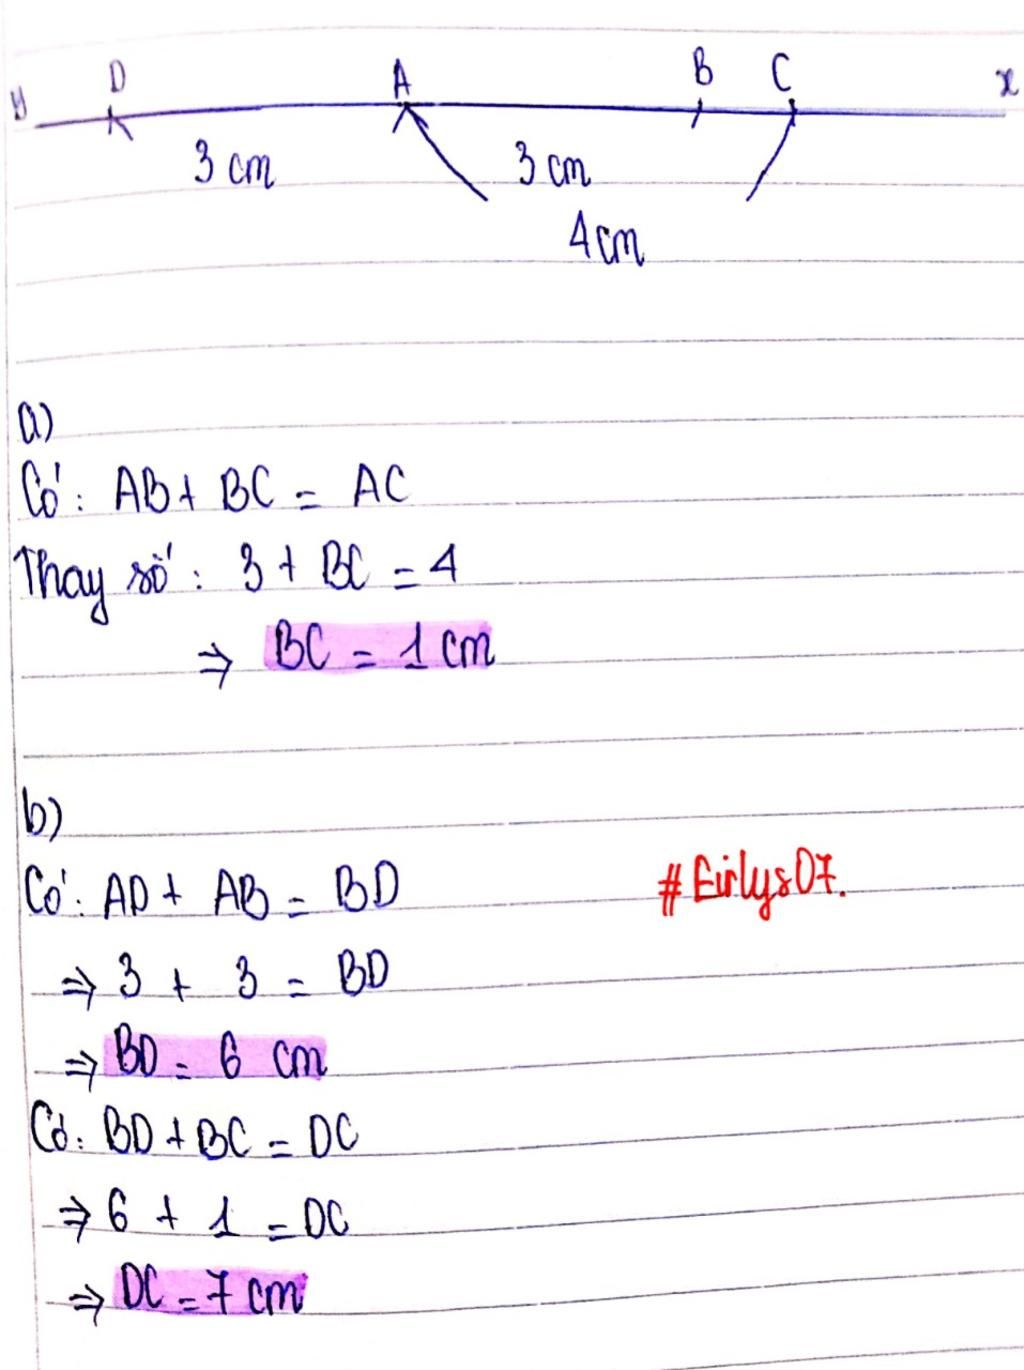 y D A B C x
3 cm 3 cm
4 cm
a)
Có: AB + BC = AC
Thay số: 3 + BC = 4
⇒ BC = 1 cm
b)
Có: AD + AB = BD
#Eirlys07.
⇒ 3 + 3 = BD
⇒ BD = 6 cm
Có: BD + BC = DC
⇒ 6 + 1 = DC
⇒ DC = 7 cm